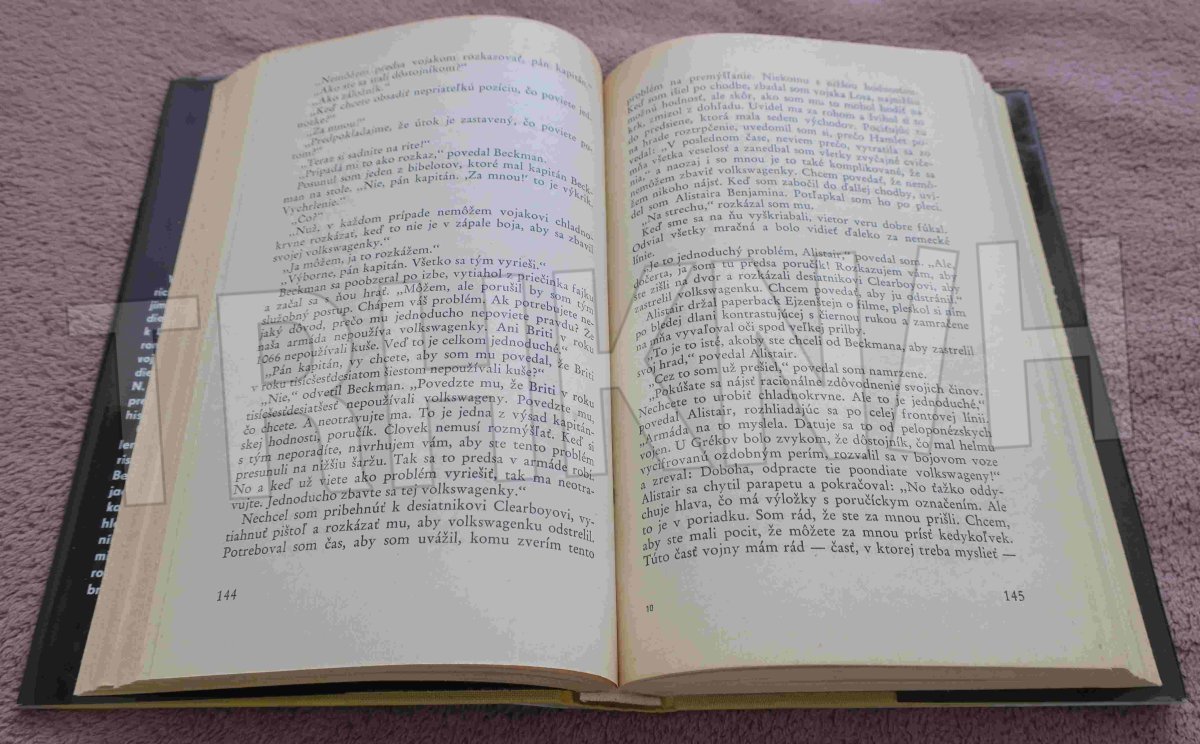 „Nemôžem predsa vojakom rozkazovať, pán kapitán.“
„Ako ste sa stali dôstojníkom?“
„Ako záložník.“
„Keď chcete obsadiť nepriateľskú pozíciu, čo poviete jed-
notke?“
„Za mnou!“
„Predpokladajme, že útok je zastavený, čo poviete po-
tom?“
„Teraz si sadnite na rite!“
„Pripadá mi to ako rozkaz,“ povedal Beckman.
Posunul som jeden z bibelotov, ktoré mal kapitán Beck-
man na stole. „Nie, pán kapitán. ‚Za mnou!‘ to je výkrik.
Vychrlenie.“
„Čo?“
„Nuž, v každom prípade nemôžem vojakovi chladno-
krvne rozkázať, keď to nie je v zápale boja, aby sa zbavil
svojej volkswagenky.“
„Ja môžem, ja to rozkážem.“
„Výborne, pán kapitán. Všetko sa tým vyrieši.“
Beckman sa poobzeral po izbe, vytiahol z priečinka fajku
a začal sa s ňou hrať. „Môžem, ale porušil by som tým
služobný postup. Chápem váš problém. Ak potrebujete ne-
jaký dôvod, prečo mu jednoducho nepoviete pravdu? Že
naša armáda nepoužíva volkswagenky. Ani Briti v roku
1066 nepoužívali kuše. Veď to je celkom jednoduché.“
„Pán kapitán, vy chcete, aby som mu povedal, že Briti
v roku tisícšesťdesiatom šiestom nepoužívali kuše?“
„Nie,“ odvetil Beckman. „Povedzte mu, že Briti v roku
tisícšesťdesiatšesť nepoužívali volkswageny. Povedzte mu,
čo chcete. A neotravujte ma. To je jedna z výsad kapitán-
skej hodnosti, poručík. Človek nemusí rozmýšľať. Keď si
s tým neporadíte, navrhujem vám, aby ste tento problém
presunuli na nižšiu šaržu. Tak sa to predsa v armáde robí.
No a keď už viete ako problém vyriešiť, tak ma neotra-
vujte. Jednoducho zbavte sa tej volkswagenky.“
Nechcel som pribehnúť k desiatnikovi Clearboyovi, vy-
tiahnuť pištoľ a rozkázať mu, aby volkswagenku odstrelil.
Potreboval som čas, aby som uvážil, komu zverím tento
144
problém na premýšľanie. Niekomu s nižšou hodnosťou.
Keď som išiel po chodbe, zbadal som vojaka Losa, najnižšiu
možnú hodnosť, ale skôr, ako som mu to mohol hodiť na
krk, zmizol z dohľadu. Uvidel ma za rohom a švihol si to
do predsiene, ktorá mala sedem východov. Pociťujúc tú
na hrade roztrpčenie, uvedomil som si, prečo Hamlet po-
vedal: „V poslednom čase, neviem prečo, vytratila sa zo
mňa všetka veselosť a zanedbal som všetky zvyčajné cviče-
nia,“ a naozaj i so mnou je to také komplikované, že sa
nemôžem zbaviť volkswagenky. Chcem povedať, že nemô-
žem nikoho nájsť. Keď som zabočil do ďalšej chodby, uvi-
del som Alistaira Benjamina. Potľapkal som ho po pleci.
„Na strechu,“ rozkázal som mu.
Keď sme sa na ňu vyškriabali, vietor veru dobre fúkal.
Odvial všetky mračná a bolo vidieť ďaleko za nemecké
línie.
„Je to jednoduchý problém, Alistair,“ povedal som. „Ale,
dočerta, ja som tu predsa poručík! Rozkazujem vám, aby
ste zišli na dvor a rozkázali desiatnikovi Clearboyovi, aby
zastrelil volkswagenku. Chcem povedať, aby ju odstránil.“
Alistair držal paperback Ejzenštejn o filme, pleskol si ním
po bledej dlani kontrastujúcej s čiernou rukou a zamračene
na mňa vyvaľoval oči spod veľkej prilby.
„To je to isté, akoby ste chceli od Beckmana, aby zastrelil
svoj hrad,“ povedal Alistair.
„Cez to som už prešiel,“ povedal som namrzene.
„Pokúšate sa nájsť racionálne zdôvodnenie svojich činov.
Nechcete to urobiť chladnokrvne. Ale to je jednoduché,“
povedal Alistair, rozhliadajúc sa po celej frontovej línii.
„Armáda na to myslela. Datuje sa to od peloponézskych
vojen. U Grékov bolo zvykom, že dôstojník, čo mal helmu
vychýrovanú ozdobným perím, rozvalil sa v bojovom voze
a zreval: Doboha, odpracte tie poondiate volkswageny!“
Alistair sa chytil parapetu a pokračoval: „No ťažko oddy-
chuje hlava, čo má výložky s poručíckym označením. Ale
to je v poriadku. Som rád, že ste za mnou prišli. Chcem,
aby ste mali pocit, že môžete za mnou prísť kedykoľvek.
Túto časť vojny mám rád — časť, v ktorej treba myslieť —
10
145